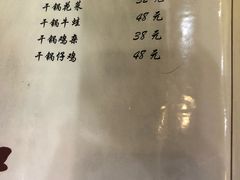 干锅花菜 32元
干锅牛蛙 48元
干锅鸡杂 38元
干锅仔鸡 48元